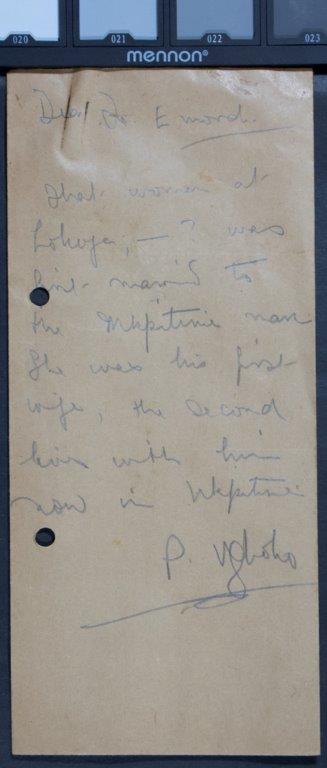 020 021 022 023
mennon®
Dear Dr. Emond.
that woman at
Lokoja, — ? was
first married to
the Mkpitime man
She was his first
wife, the second
lives with him
now in Mkpitime
P. Ugboko